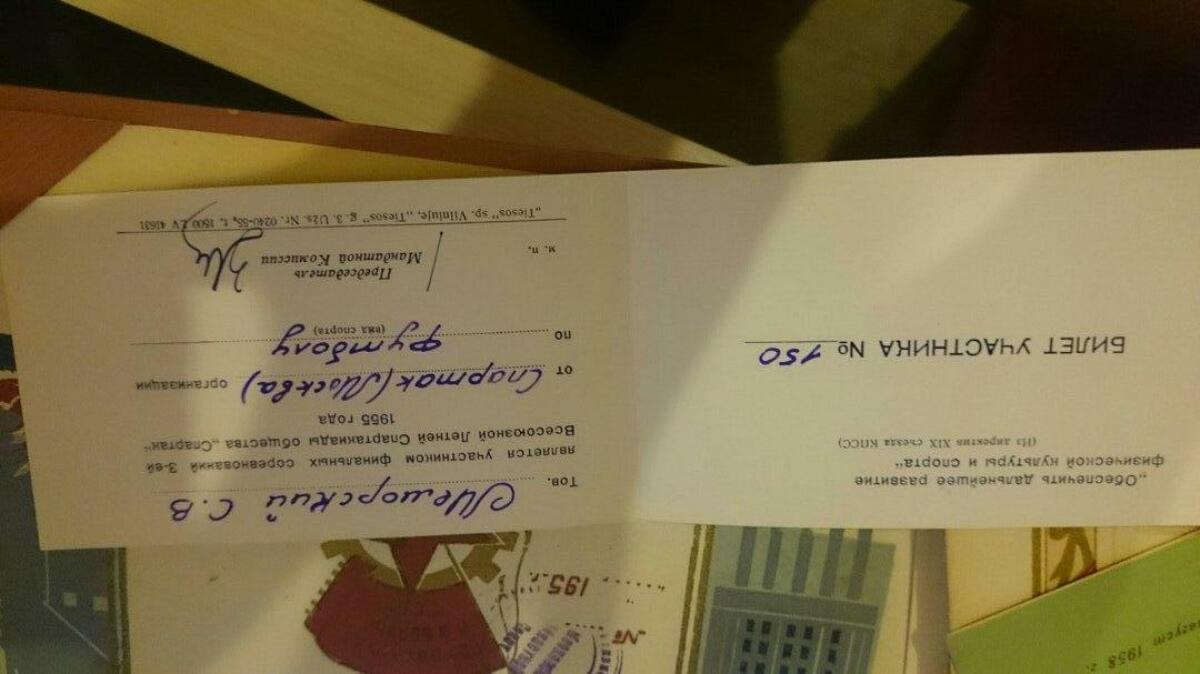 „Обеспечить дальнейшее развитие
физической культуры и спорта“
(Из директив XIX съезда КПСС)
БИЛЕТ УЧАСТНИКА № 150
Тов. Мешорский С.В
является участником финальных соревнований 3-ей
Всесоюзной Летней Спартакиады общества „Спартак“
1955 года
от Спартак (Москва) организации
по футболу
(вид спорта)
Председатель
Мандатной Комиссии
м. п.
„Tiesos“ sp. Vilniuje, „Tiesos“ g. 3. Užs. Nr. 0240-55, t. 1800 LV 41631
№
195
август 1958 г.